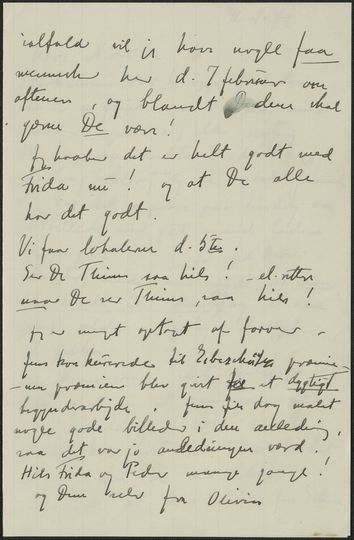 ialfald vil jeg have nogle faa
mennesker her d. 7 februar om
aftenen, og blandt dem skal
gerne De være!
Jeg haaber det er helt godt med
Frida nu! og at De alle
har det godt.
Vi faar lokalerne d. 5te.
Ser De Thiis saa hils! - el. rettere
naar De ser Thiis, saa hils!
jeg er meget optaget af farver -
præmie
- nu præmien blev givet et dygtigt
byggearbejde. dog malet
nogle gode billeder i den anledning,
saa det var jo anledningen værd.
Hils Frida og Peder mange gange!
og Dem selv fra Olivia